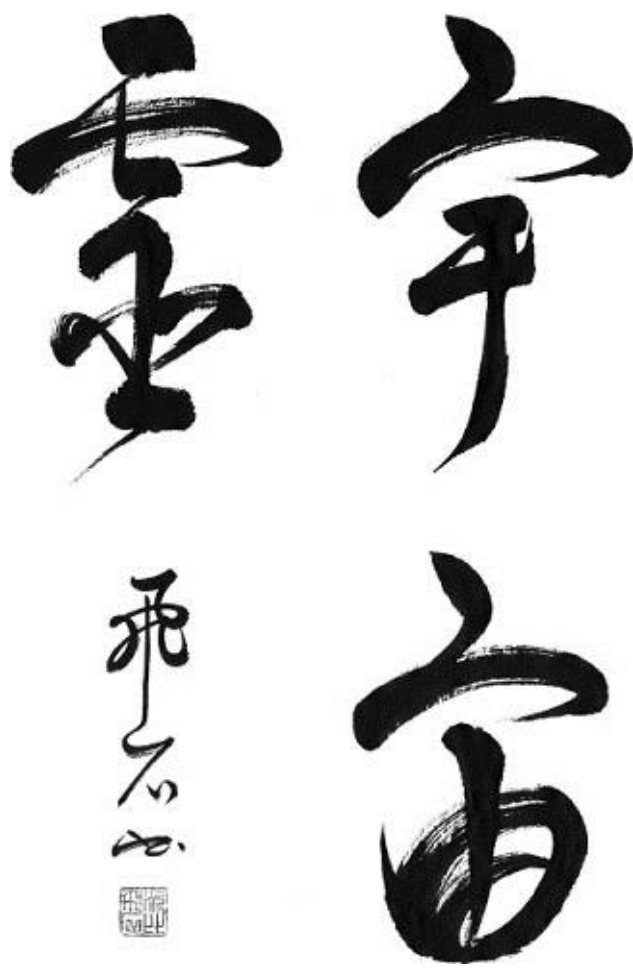 宇宙
霊
飛石